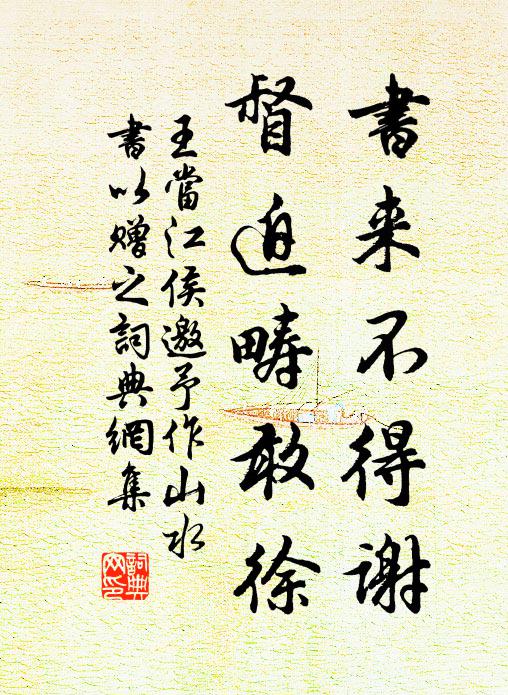 書来不得谢
督迫畴敢徐
王當江侯邀予作山水
書以贈之詞典網集
詞典
网印